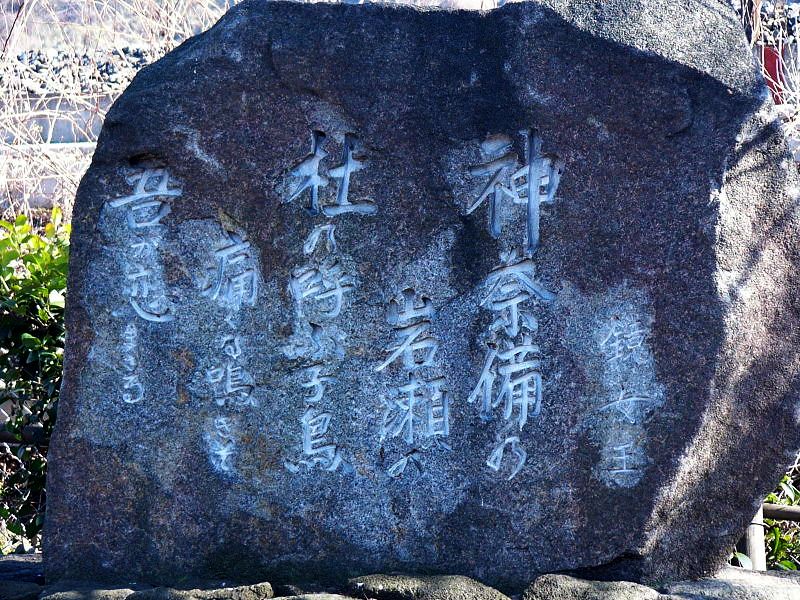 鏡女王
神奈備の
岩瀬の
杜の呼ぶ子鳥
痛くな鳴きそ
吾が恋まさる